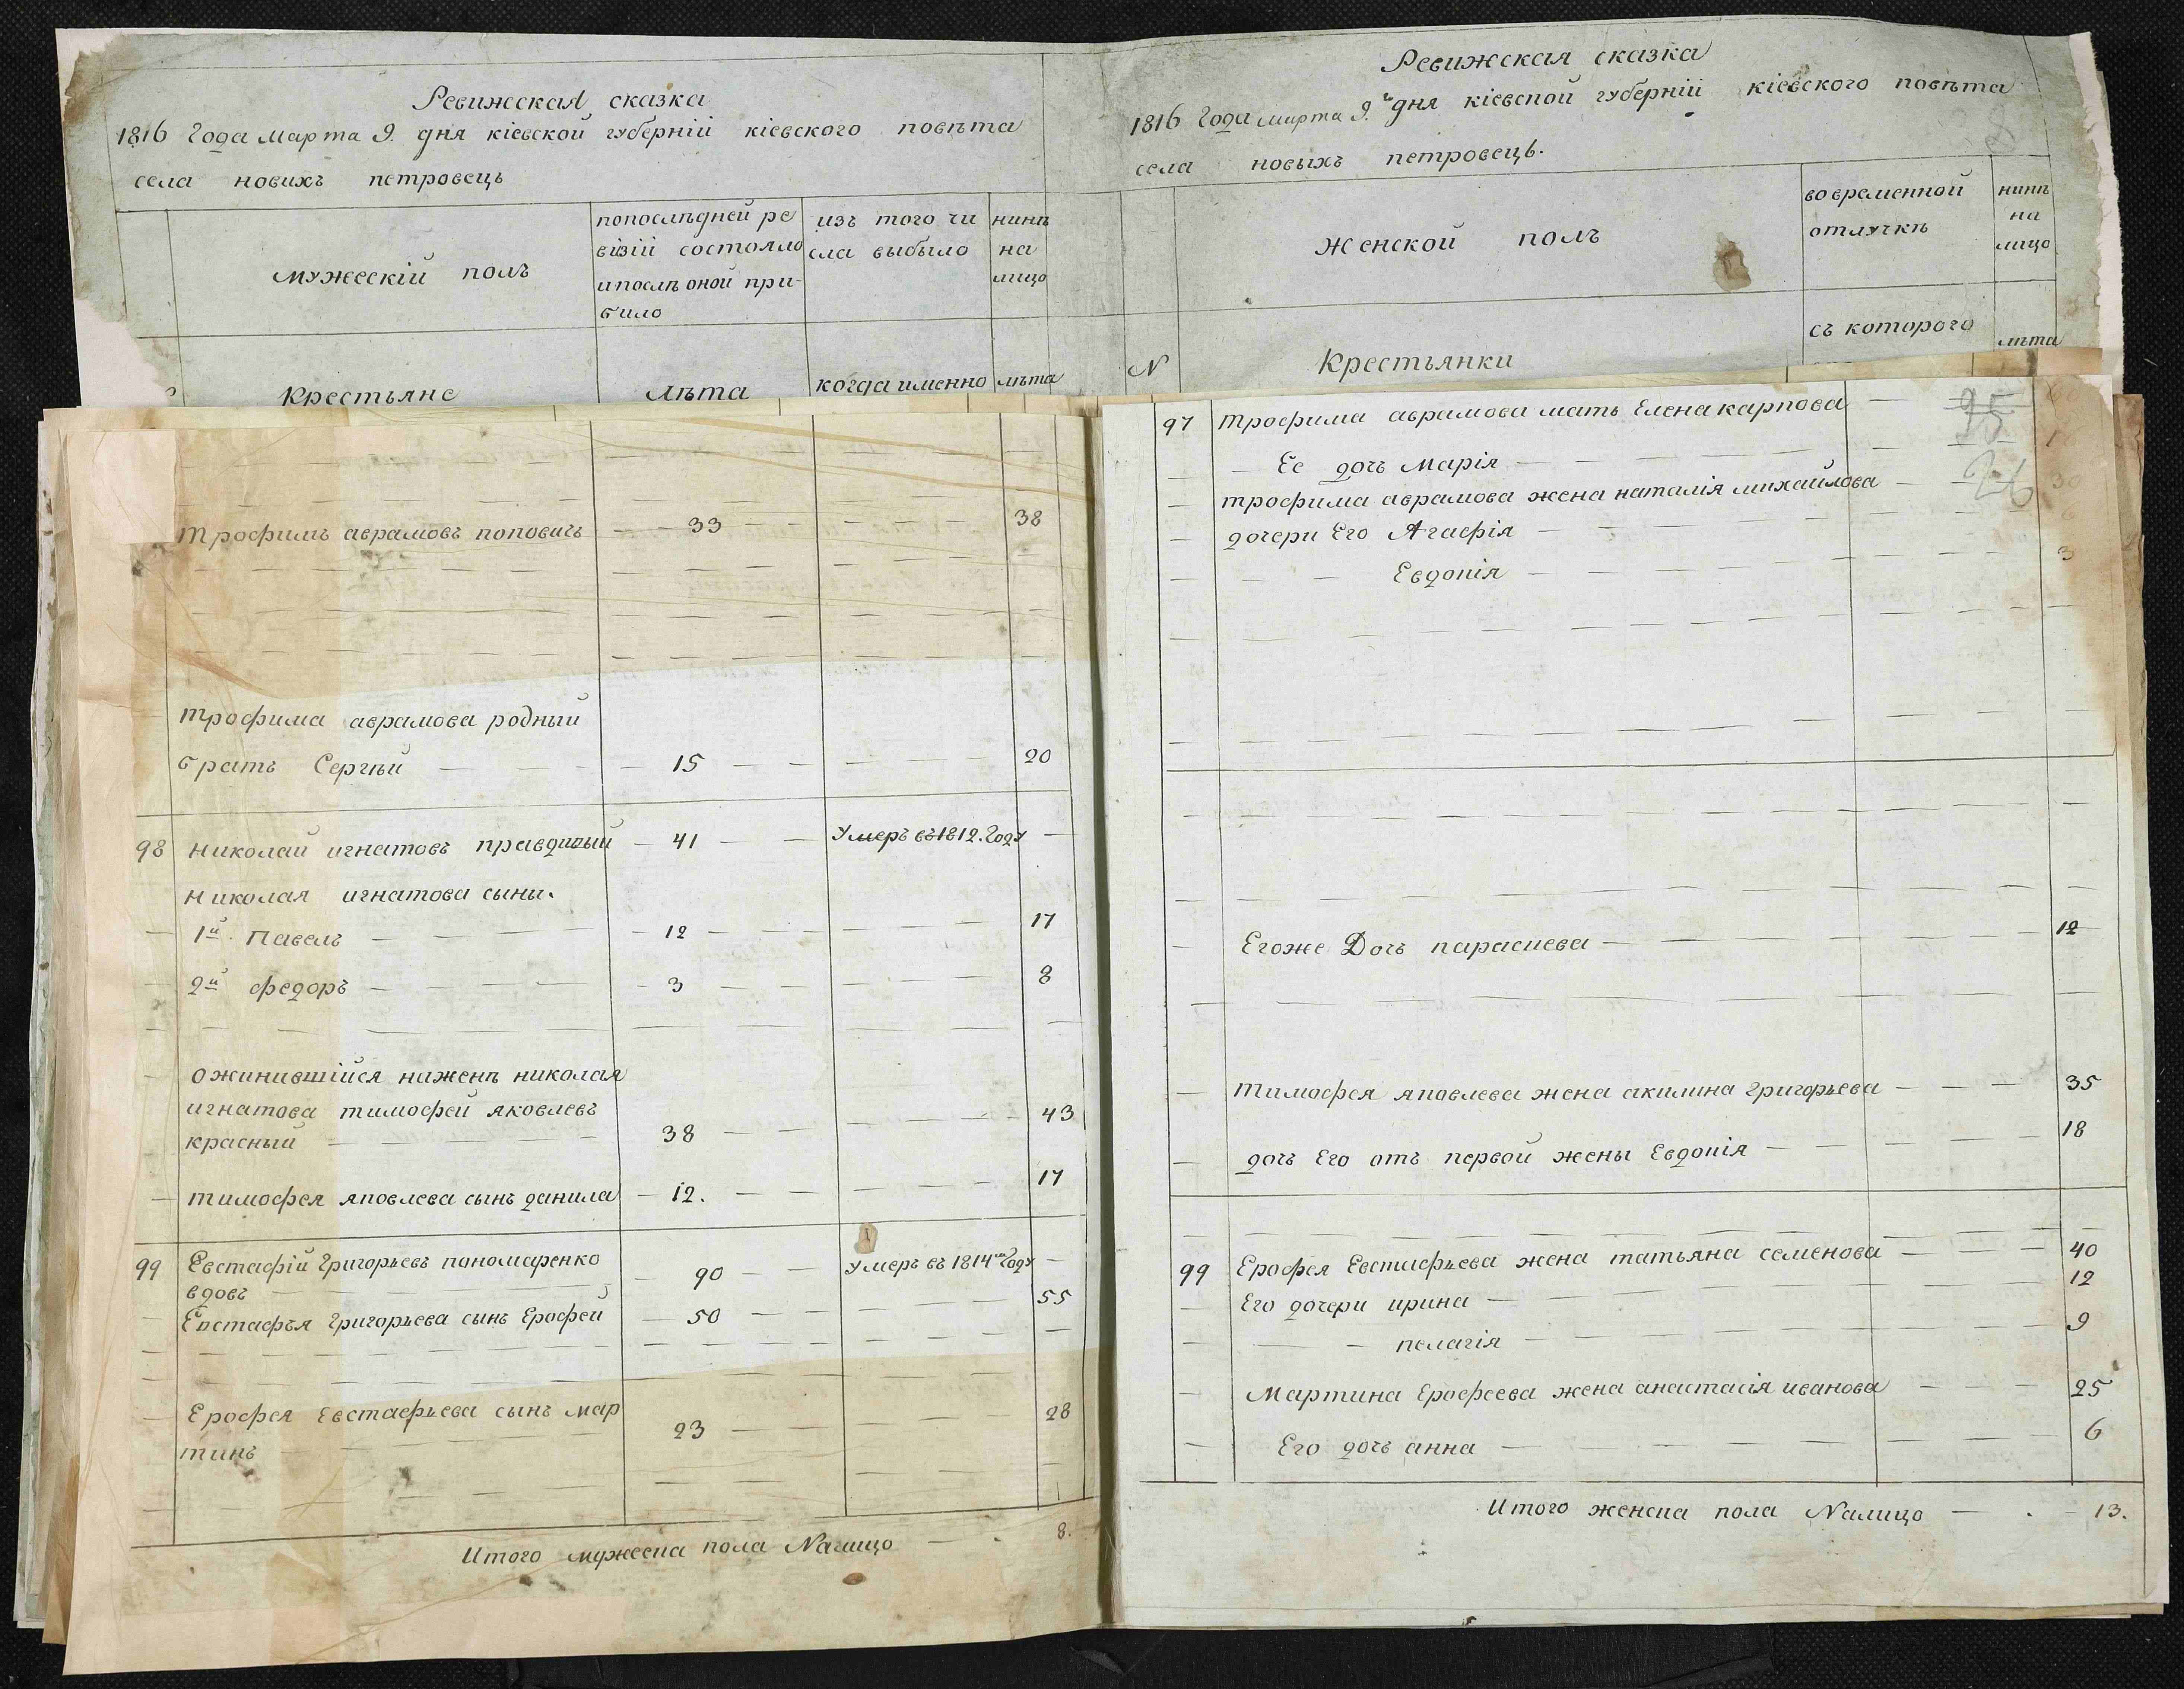 Ревижская сказка
1816 Года марта 9. дня кіевской губерніи кіевского повѣта
села новихъ петровець
мужескій полъ
попослѣдней ре
визіи состояло
ипослѣ оной при-
било
изъ того чи
сла выбыло
нинѣ
на
лицо
Крестьяне
Лѣта
когда именно
лѣта
трофимъ аврамовъ поповичъ — 33 — 38
трофима аврамова родный
братъ Сергѣй — 15 — 20
98 николай игнатовъ правдивый — 41 — Умеръ въ 1812. Году —
николая игнатова сыны.
1й. Павелъ — 12 — 17
2й федоръ — 3 — 8
ожинившійся наженѣ николая
игнатова тимофей яковлевъ
красный — 38 — 43
тимофея яковлева сынъ данила — 12. — 17
99 Евстафій Григорьевъ пономаренко
вдовъ — 90 — Умеръ въ 1814м Году —
Евстафъя Григорьева сынъ Ерофей — 50 — 55
Ерофея Евстафьева сынъ мар
тинъ — 23 — 28
Итого мужеска пола Налицо — 8.
Ревижская сказка
1816 Года марта 9.ъ дня кіевской губерніи кіевского повѣта
села новыхъ петровець.
N
женской полъ
вовременной
отлучкѣ
нинѣ
на
лицо
Крестьянки
съ которого
лѣта
97 трофима аврамова мать Елена карпова — 95 60
— Ее дочь Марія — 18
— трофима аврамова жена наталія михайлова — 26 30
— дочери Его Агафія — 6
— Евдокія — 3
— Егоже Дочь параскева — 12
— тимофея яковлева жена акилина григорьева — 35
— дочь Его отъ первой жены Евдокія — 18
99 Ерофея Евстафьева жена татьяна семенова — 40
— Его дочери ирина — 12
— пелагія — 9
— Мартина Ерофеева жена анастасія иванова — 25
— Его дочь анна — 6
Итого женска пола Налицо — 13.